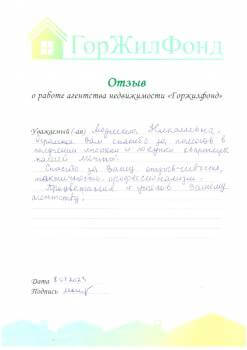 ГорЖилФонд
Отзыв
о работе агентства недвижимости «Горжилфонд»
Уважаемый (ая) Николаевна,
Вам спасибо за помощь в
получении ипотеки и покупки квартиры
нашей мечты!
Спасибо за Вашу
тактичность, профессионализм.
Процветания и успехов Вашему
агентству.
Дата
Подпись